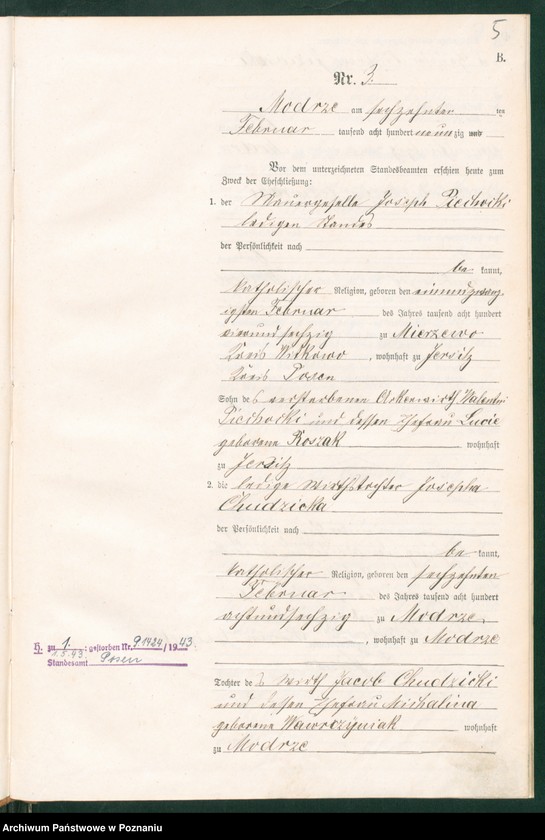 5
B.
Nr. 3.
Modrze am sechzehnten ten
Februar tausend acht hundert neunzig und
Vor dem unterzeichneten Standesbeamten erschien heute zum
Zweck der Eheschließung:
1. der Mauergeselle Joseph Piechocki
ledigen Standes
der Persönlichkeit nach
be kannt,
katholischer Religion, geboren den einundzwanz-
igsten Februar des Jahres tausend acht hundert
vierundsechzig zu Mierzewo
Kreis Witkowo, wohnhaft zu Jersitz
Kreis Posen
Sohn des verstorbenen Ackerwirth Valentin
Piechocki und dessen Ehefrau Lucie
geborene Roszak wohnhaft
zu Jersitz
2. die ledige Wirthstochter Josepha
Chudzicka
der Persönlichkeit nach
be kannt,
katholischer Religion, geboren den sechzehnten
Februar des Jahres tausend acht hundert
achtundsechzig zu Modrze
, wohnhaft zu Modrze
Tochter des Wirth Jacob Chudzicki
und dessen Ehefrau Michalina
geborene Wawrzyniak wohnhaft
zu Modrze
H. zu 1. : gestorben Nr. 91424/1943.
1.5.43.
Standesamt Posen
Archiwum Państwowe w Poznaniu